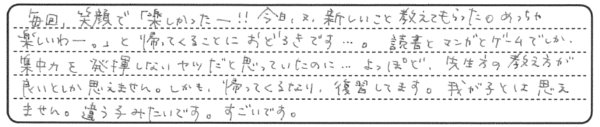 毎回、笑顔で「楽しかったー!!今日、又、新しいこと教えてもらった。めっちゃ
楽しいわー。」と帰ってくることにおどろきです…。読書とマンガとゲームでしか、
集中力を発揮しないヤツだと思っていたのに…よっぽど、先生方の教え方が
良いとしか思えません。しかも、帰ってくるなり、復習してます。我が子とは思え
ません。違う子みたいです。すごいです。